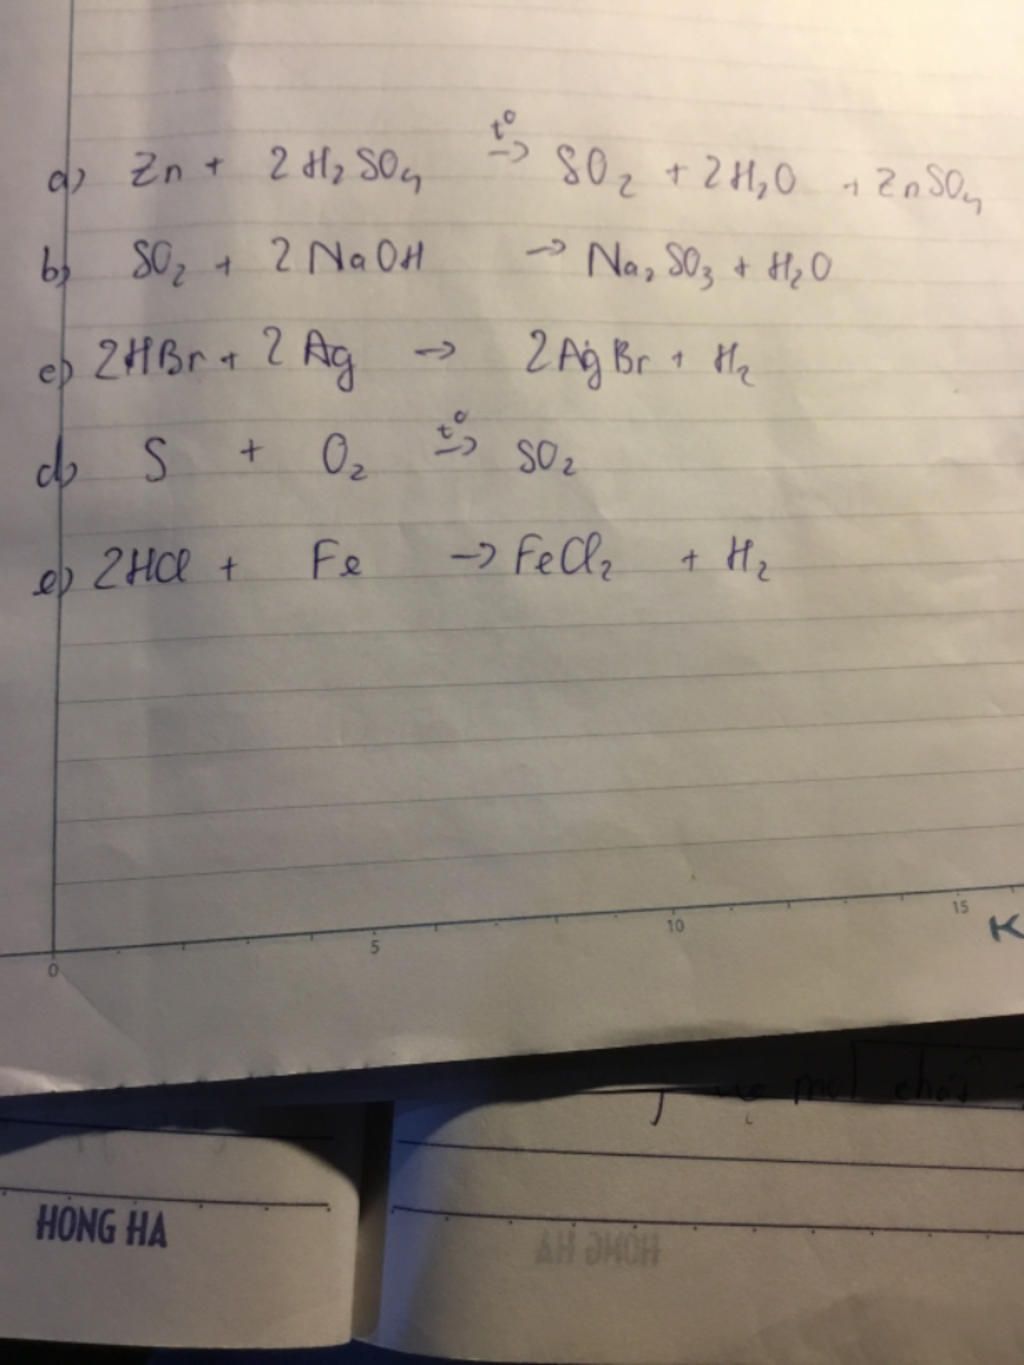 a) Zn + 2H₂SO₄ t⁰→ SO₂ + 2H₂O + ZnSO₄
b) SO₂ + 2NaOH → Na₂SO₃ + H₂O
c) 2HBr + 2Ag → 2AgBr + H₂
d) S + O₂ t⁰→ SO₂
e) 2HCl + Fe → FeCl₂ + H₂
0 5 10 15 K
mol chất
HONG HA
HONG HA